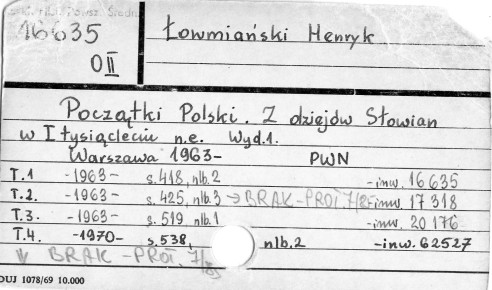 16635
O II
Łowmiański Henryk
Początki Polski. Z dziejów Słowian
w I tysiącleciu n.e. Wyd.1.
Warszawa 1963- PWN
T.1 -1963- s.418, nlb.2 -inw. 16635
T.2. -1963- s.425, nlb.3 → BRAK - PROT. 7/85 -inw. 17318
T.3. -1963- s.519 nlb.1 -inw. 20176
T.4. -1970- s.538, nlb.2 -inw. 62527
BRAK - PROT. 7/85
DUJ 1078/69 10.000